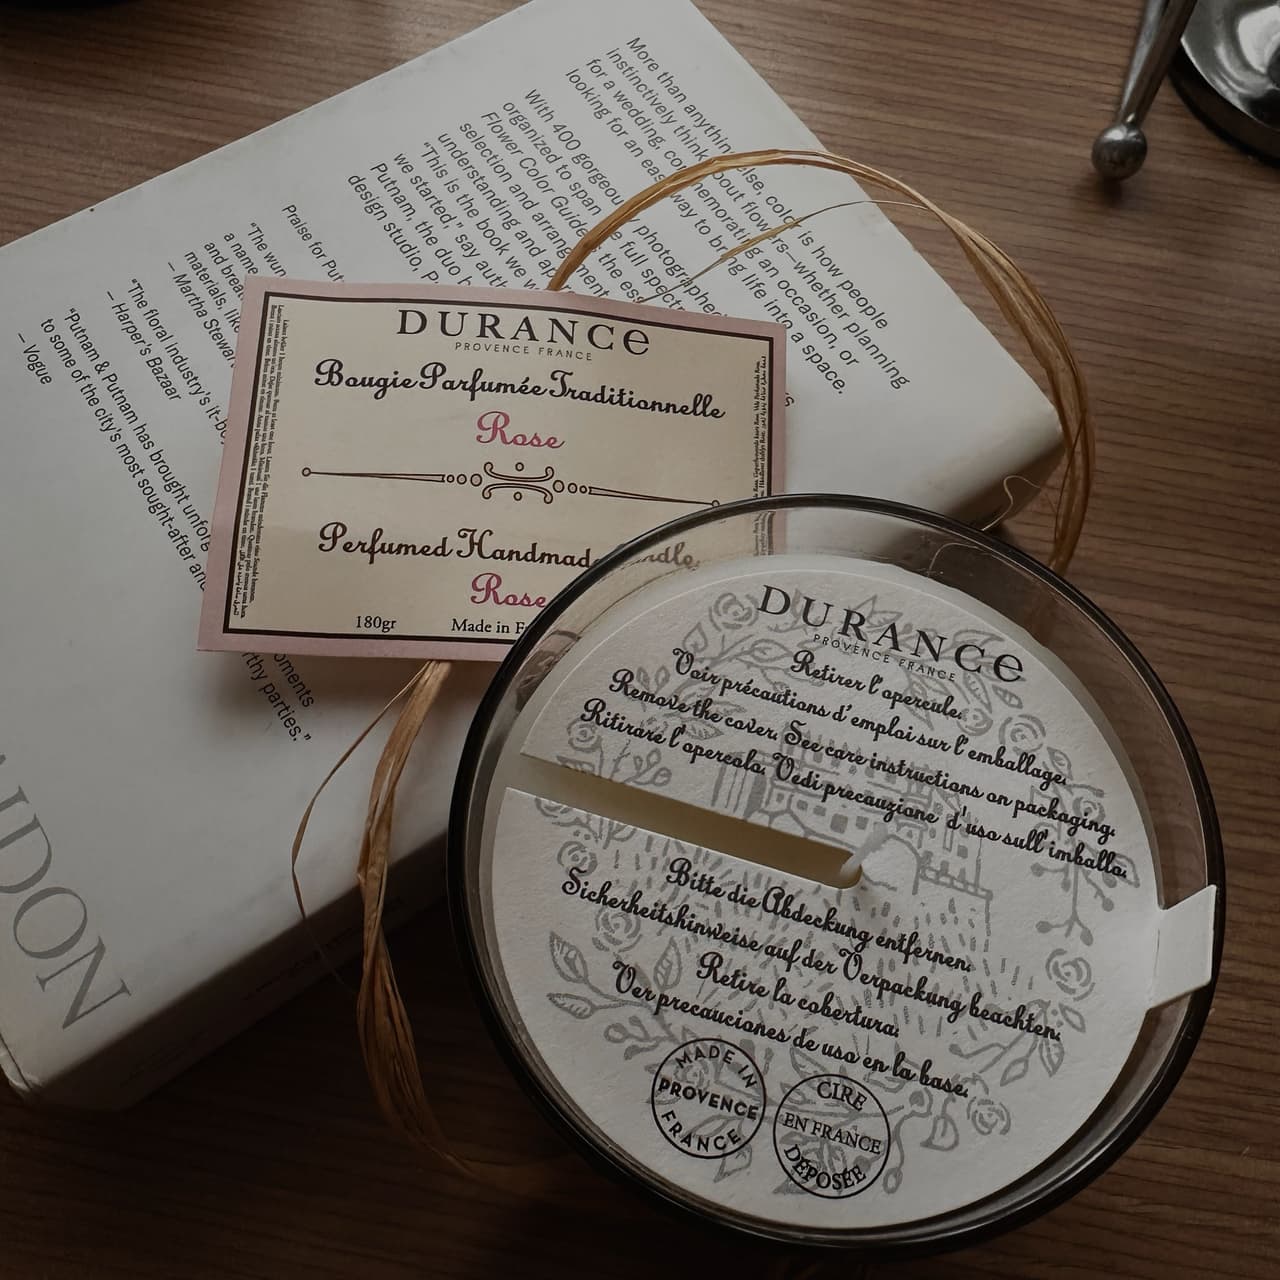 More than anything else, color is how people
instinctively think about flowers—whether planning
for a wedding, commemorating an occasion, or
looking for an easy way to bring life into a space.
With 400 gorgeous photographed
organized to span the full spectr
Flower Color Guide is the ess
selection and arrangement
understanding and ap
"This is the book we w
we started," say auth
Putnam, the duo b
design studio, P
Praise for Put
"The wun
a name
and brea
materials, like
— Martha Stewart
"The floral industry's it-bo
— Harper's Bazaar
"Putnam & Putnam has brought unfo
to some of the city's most sought-after and
— Vogue
oments
rthy parties."
IDON
DURANCE
PROVENCE FRANCE
Bougie Parfumée Traditionnelle
Rose
Perfumed Handmade Candle
Rose
180gr Made in Fr
DURANCE
PROVENCE FRANCE
Retirer l'opercule.
Voir précautions d'emploi sur l'emballage.
Remove the cover. See care instructions on packaging.
Ritirare l'opercolo. Vedi precauzione d'uso sull'imballo.
Bitte die Abdeckung entfernen.
Sicherheitshinweise auf der Verpackung beachten.
Retire la cobertura.
Ver precauciones de uso en la base.
MADE IN
PROVENCE
FRANCE
CIRE
EN FRANCE
DÉPOSÉE